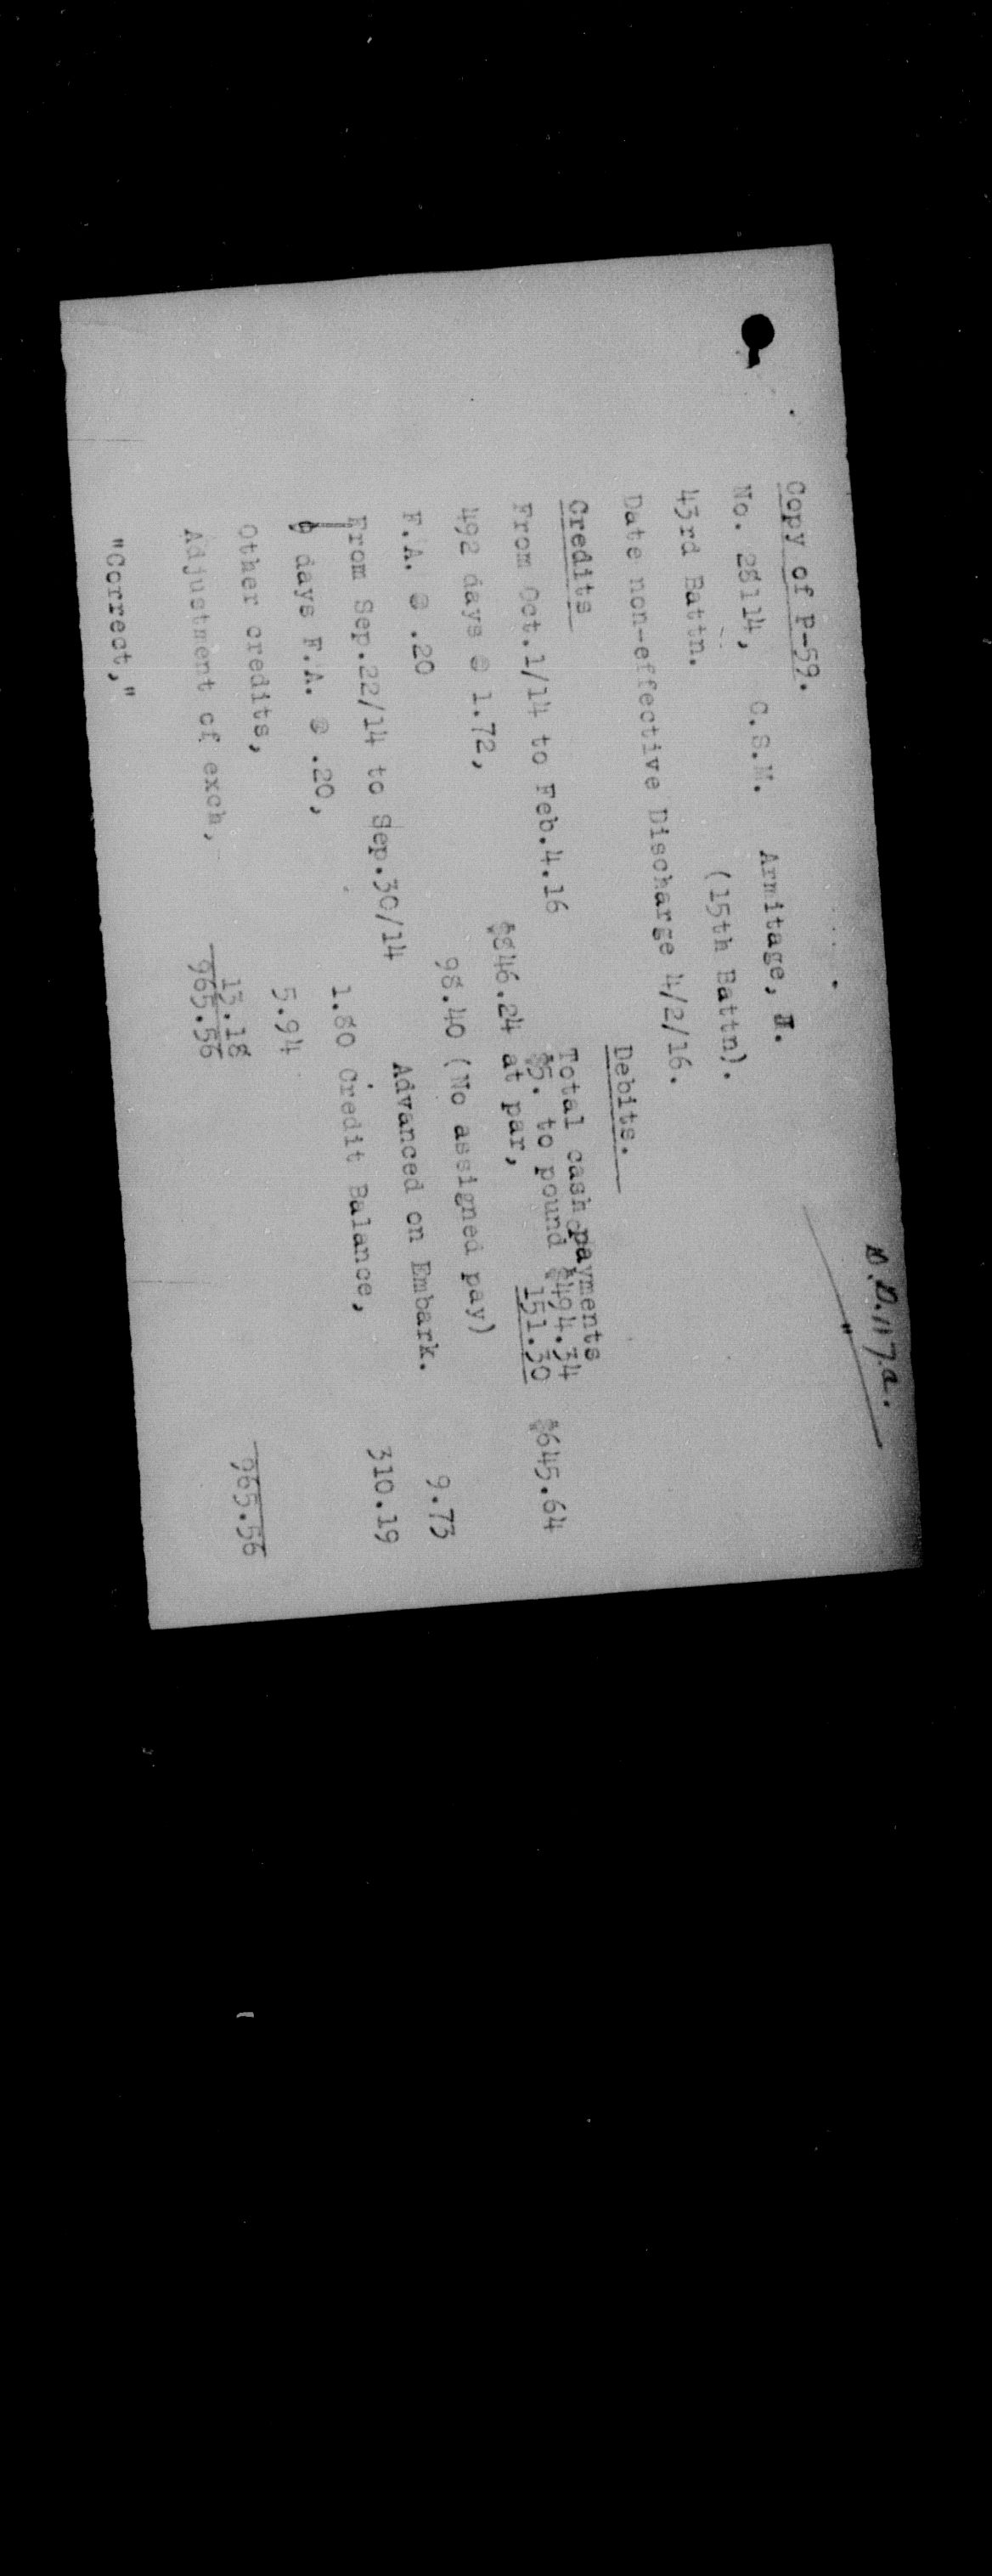 D.D.117.a.
"
Copy of P-59.
No. 28114, C.S.M. Armitage,
43rd Battn. (15th Battn).
Date non-effective Discharge 4/2/16.
Credits Debits.
From Oct.1/14 to Feb.4.16 Total cash payments
$5. to pound $494.34
492 days @ 1.72, $846.24 at par, 151.30 $645.64
F.A. @ .20 98.40 (No assigned pay)
From Sep.22/14 to Sep.30/14 Advanced on Embark. 9.73
9 days F.A. @ .20, 1.80 Credit Balance, 310.19
Other credits, 5.94
Adjustment of exch, 13.18
965.56 965.56
"Correct,"